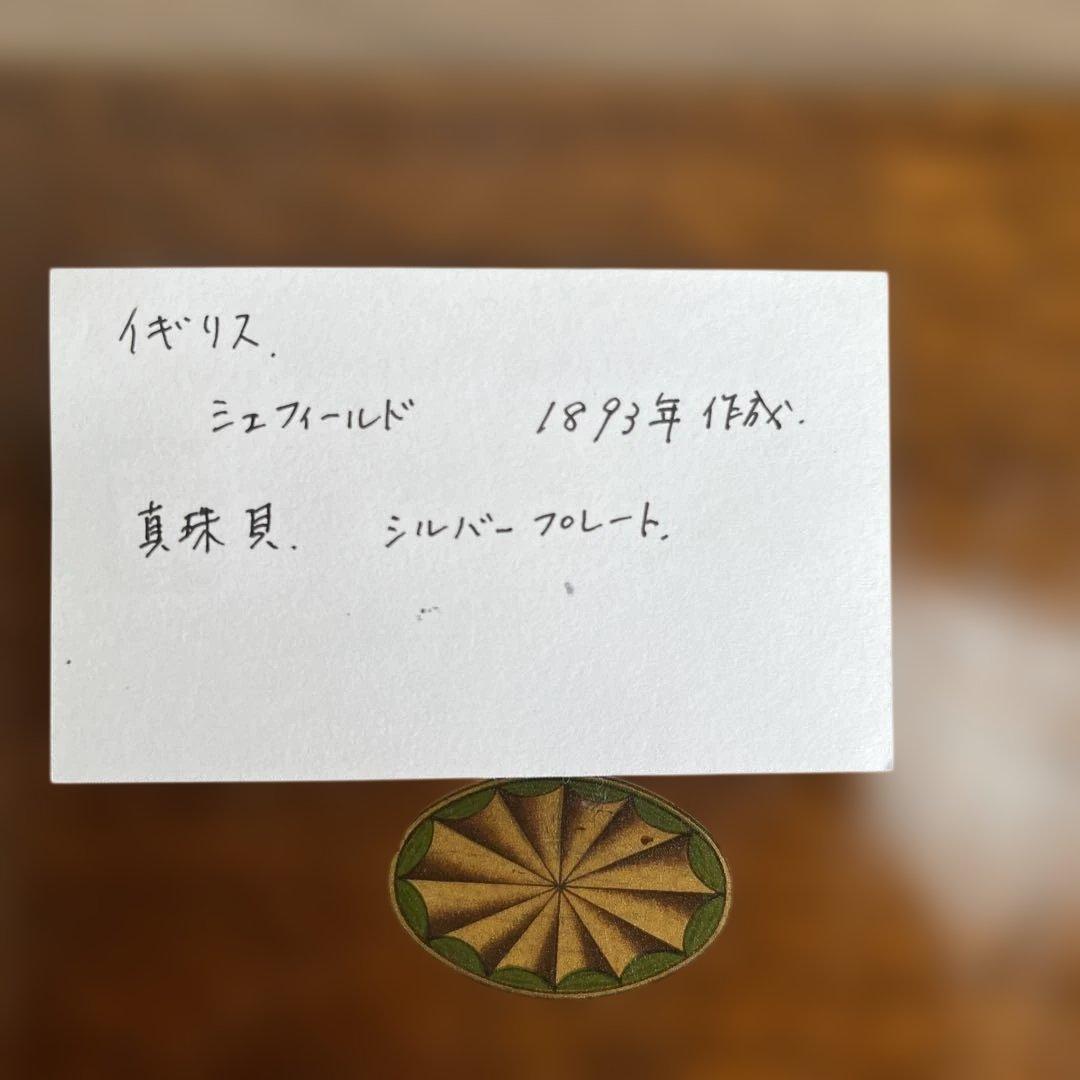 イギリス.
シェフィールド 1893年 作成.
真珠貝. シルバープレート.